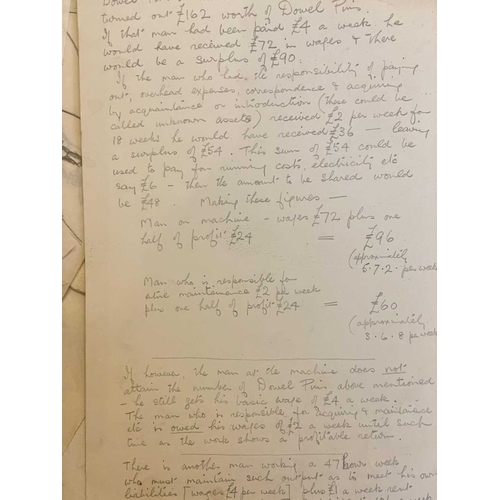 Dowel
turned out £162 worth of Dowel Pins.
If that man had been paid £4 a week he
would have received £72 in wages & there
would be a surplus of £90.
If the man who had the responsibility of paying
out, overhead expenses, correspondence & acquiring
by acquaintance or introduction (these could be
called unknown assets) received £2 per week for
18 weeks he would have received £36 — leaving
a surplus of £54. This sum of £54 could be
used to pay for running costs, electricity etc
say £6 – then the amount to be shared would
be £48. Making these figures —
Man on machine – wages £72 plus one
half of profit £24 = £96
(approximately
5.7.2. per week
Man who is responsible for
maintenance £2 per week
plus one half of profit £24 = £60
(approximately
3.6.8 per week
If however, the man at the machine does not
attain the number of Dowel Pins above mentioned
– he still gets his basic wage of £4 a week.
The man who is responsible for acquiring & maintaince
etc is owed his wages of £2 a week until such
time as the work shows a profitable return.
There is another man working a 47 hour week
who must maintain such output as to meet his own
liabilities [wages £4 per week] plus £1 a week rent